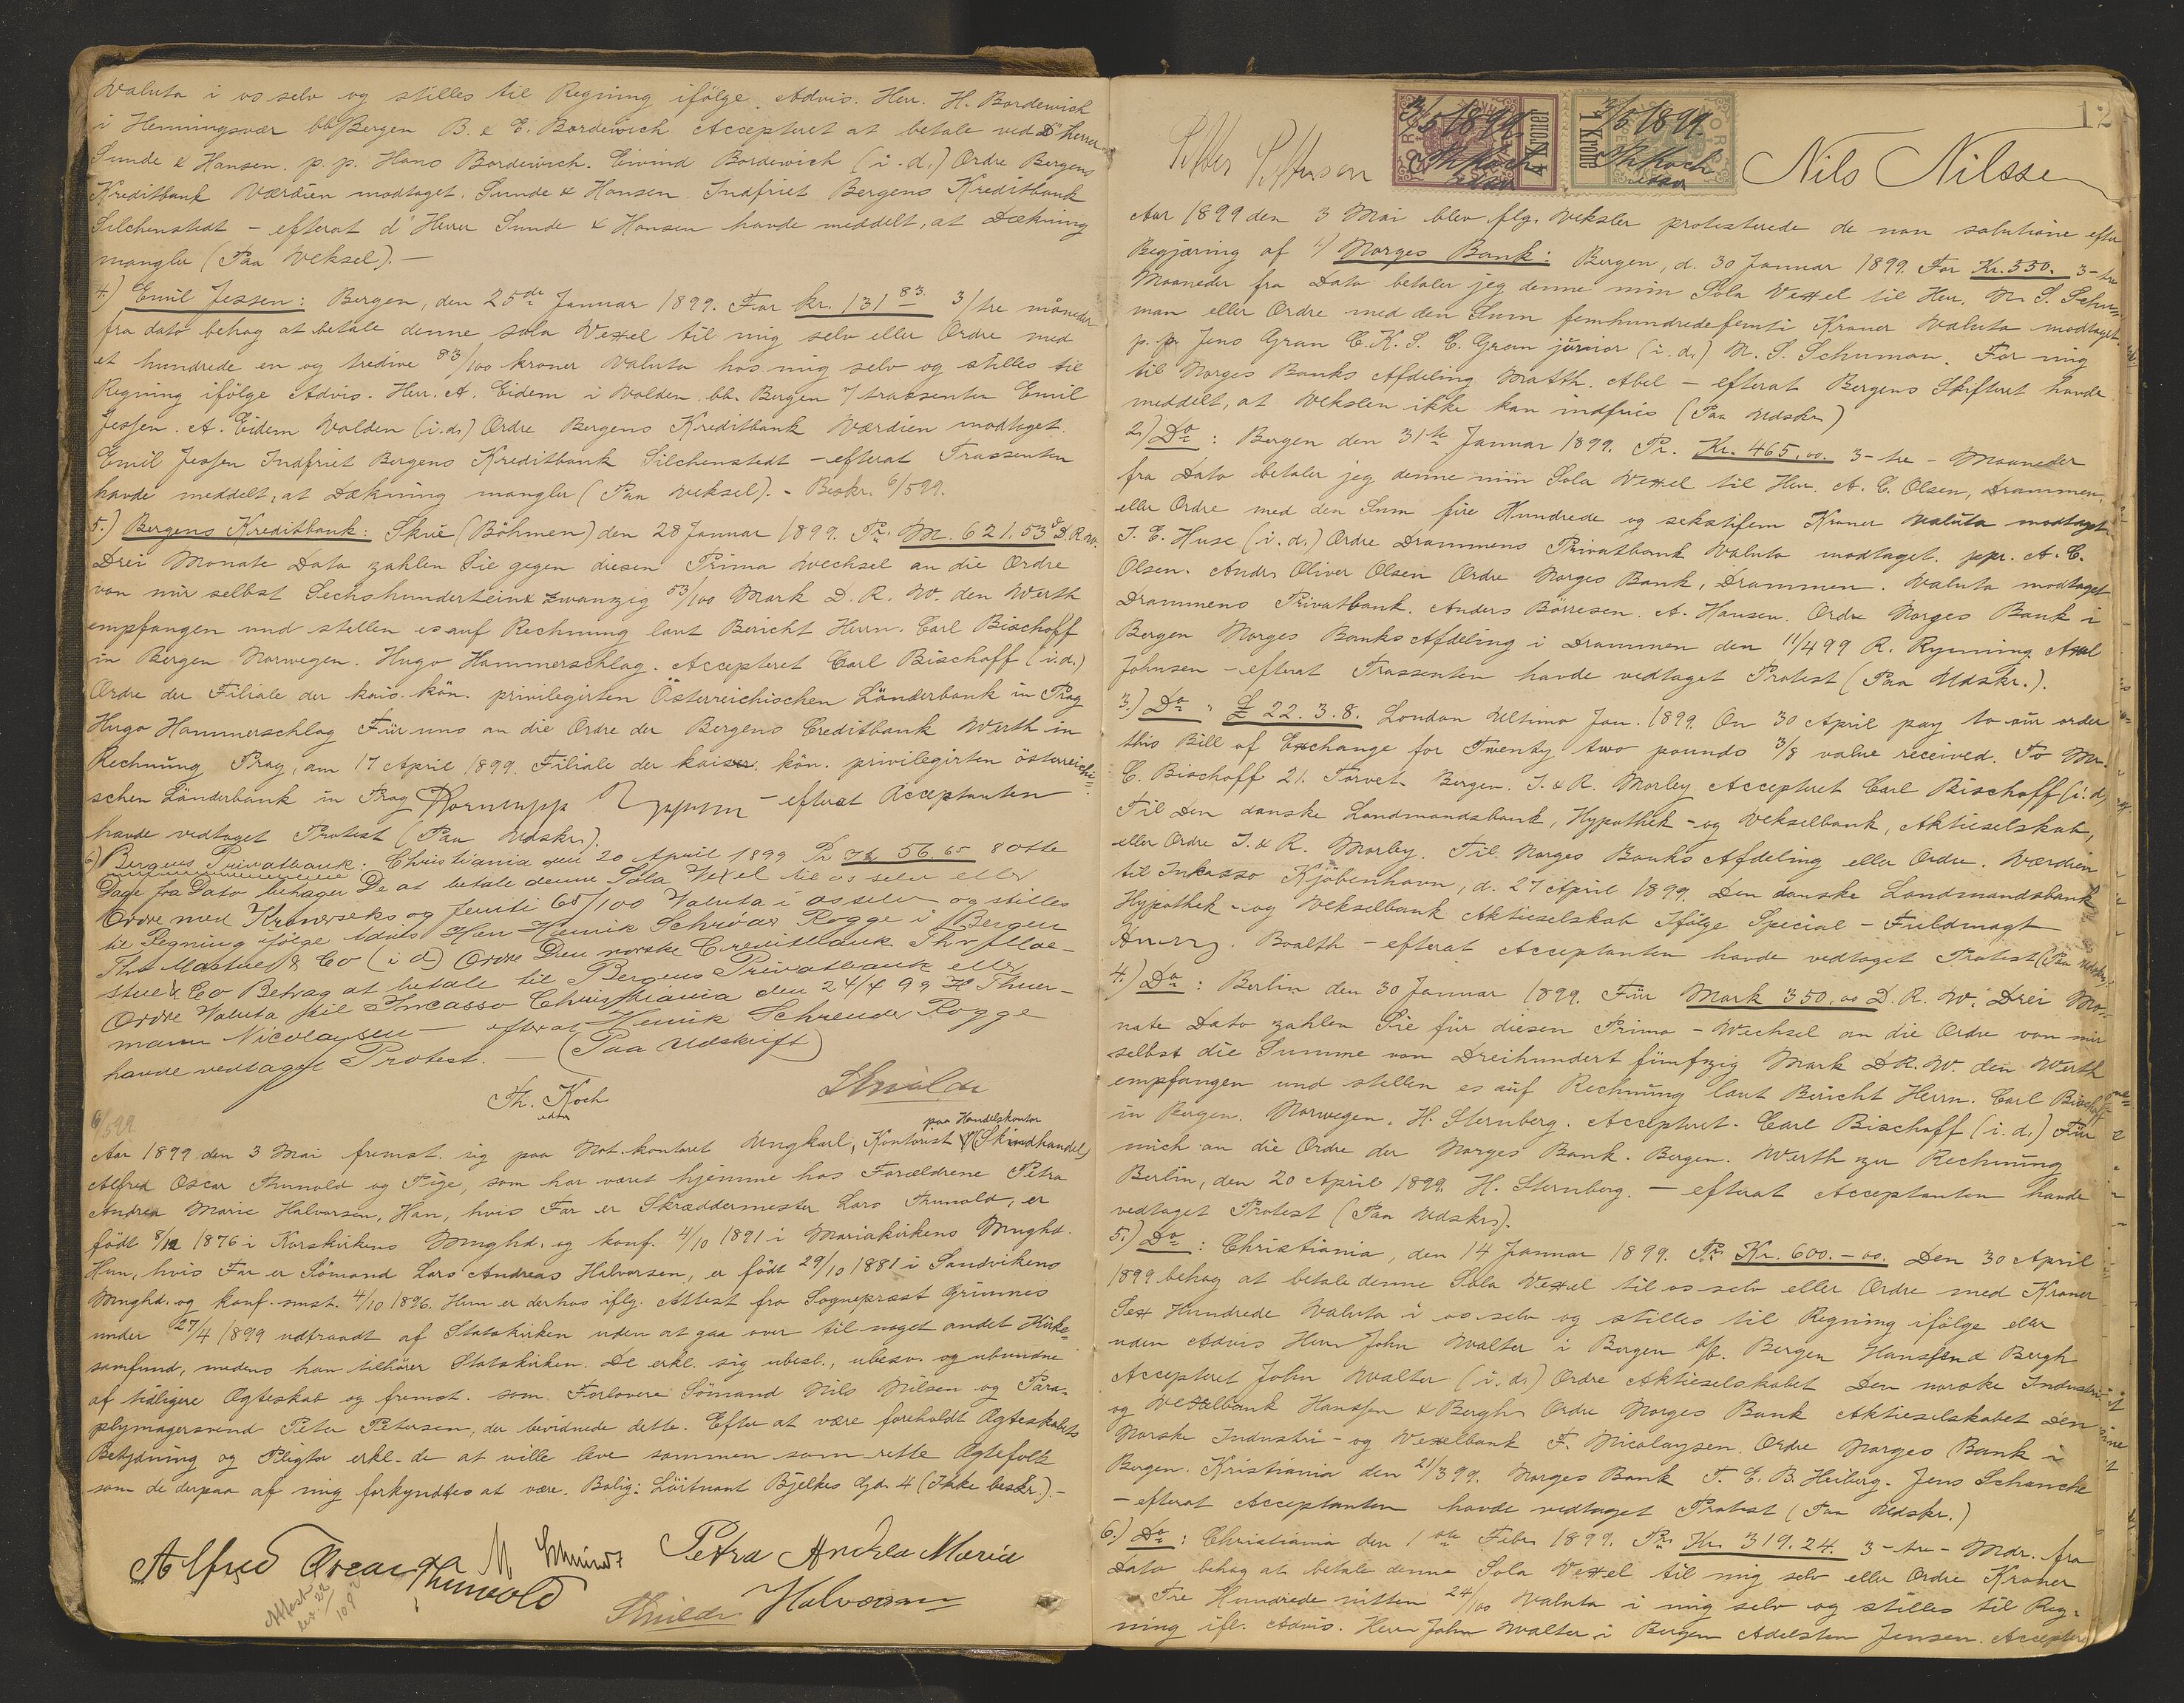 Valuta i os selv og stilles til Regning ifölge Advis. Herr. H. Bordewich
i Henningsvær bb/Bergen B. & E. Bordewich Accepteret at betale ved D' herrer
Sunde & Hansen. p. p. Hans Bordewich. Eivind Bordewich (i. d.) Ordre Bergens
Kreditbank Værdien modtaget. Sunde & Hansen. Indfriet Bergens Kreditbank
Silchenstedt - efterat d' Herrer Sunde & Hansen havde meddelt, at Dækning
mangler (Paa Veksel). -
4.) Emil Jessen: Bergen, den 25de Januar 1899. For kr. 131 83. 3/tre måneder
fra dato behag at betale denne sola Vexel til mig selv eller Ordre med
et hundrede en og tredive 83/100 kroner Valuta hos mig selv og stilles til
Regning ifölge Advis. Herr. A. Eidem i Volden bb. Bergen / trassenten Emil
Jessen. A. Eidem Volden (i. d.) Ordre Bergens Kreditbank Værdien modtaget.
Emil Jessen Indfriet Bergens Kreditbank Silchenstedt - efterat Trassenten
havde meddelt, at Dækning mangler (Paa Veksel). - Beskr. 6/5 99.
5.) Bergens Kreditbank: Skrie (Böhmen) den 28 Januar 1899. Pr. M. 621.53 D. R. W.
Drei Monate Dato zahlen Sie gegen diesen Prima Wechsel an die Ordre
von mir selbst Sechshundertein & zwanzig 53/100 Mark D. R. W. den Werth
empfangen und stellen es auf Rechnung laut Bericht Herrn. Carl Bischoff
in Bergen Norwegen. Hugo Hammerschlag. Accepteret Carl Bischoff (i. d.)
Ordre der Filiale der kais. kön. privilegirten Österreichischen Länderbank in Prag
Hugo Hammerschlag Für uns an die Ordre der Bergens Creditbank Werth in
Rechnung Prag, am 17 April 1899. Filiale der kaiser. kön. privilegirten österreichi=
schen Länderbank in Prag - efterat Acceptanten
havde vedtaget Protest (Paa Udskr.).
6) Bergens Privatbank: Christiania den 20 April 1899 Pr Kr 56.65 8 otte
Dage fra Dato behager De at betale denne Sola Vexel til os selv eller
Ordre med Kroner seks og femti 65/100 Valuta i os selv og stilles
til Regning ifölge Advis Herr Henrik Schröder Rogge i Bergen
Thv Mastue & Co (i d) Ordre Den norske Creditbank Thv Ma-
stue & Co Betrag at betale til Bergens Privatbank eller
Ordre Valuta til Incasso Christiania den 24/4 99 H Thuer-
mann Nicolaysen - efterat Henrik Schreuder Rogge
havde vedtaget Protest. - (Paa Udskrift)
Th. Koch
edsv
6/5 99
paa Handelskontor
Aar 1899 den 3 Mai fremst. sig paa Not. kontoret Ungkarl, Kontorist (Skindhandel)
Alfred Oscar Thunold og Pige, som har været hjemme hos Forældrene Petra
Andrea Marie Halvorsen, Han, hvis Far er Skræddermester Lars Thunold, er
födt 8/12 1876 i Korskirkens Mnghd. og konf. 4/10 1891 i Mariakirkens Mnghd.
Hun, hvis Far er Sömand Lars Andreas Halvorsen, er födt 29/10 1881 i Sandvikens
Mnghd. og konf. smst. 4/10 1896. Hun er derhos iflg. Attest fra Sognepræst Grimnes
under 27/4 1899 udtraadt af Statskirken uden at gaa over til noget andet Kirke=
samfund, medens han tilhörer Statskirken. De erkl. sig ubesl., ubesv. og ubundne
af tidligere Ægteskab og fremst. som Forlovere Sömand Nils Nilsen og Para-
plymagersvend Peter Petersen, der bevidnede dette. Efter at være foreholdt Ægteskabets
Betydning og Pligter erkl. de at ville leve sammen som rette Ægtefolk
som de derpaa af mig forkyndtes at være. Bolig: Löitnant Bjelkes Gd. 4 (Ikke beskr.). -
Alfred Oscar Thunold
Petra Andrea Marie
Halvorsen
Attest
12
Petter Pettersen
3/5 1899.
Th Koch
edsv
4 Kroner
3/5 1899.
Th Koch
edsv
1 Krone
Nils Nilssen
Aar 1899 den 3 Mai blev flg. Veksler protesterede de non solutione efter
Begjæring af 1.) Norges Bank: Bergen, d. 30 Januar 1899. For Kr. 550. 3-tre
Maaneder fra Dato betaler jeg denne min Sola Vexel til Herr. M. S. Schu=
man eller Ordre med den Sum femhundredefemti Kroner Valuta modtaget.
p. p. Jens Gran C. K. S. C. Gran júnior (i. d.) M. S. Schuman. For mig
til Norges Banks Afdeling Matth. Abel - efterat Bergens Skifteret havde
meddelt, at Vekslen ikke kan indfries (Paa Udskr.)
2.) Do: Bergen den 31te Januar 1899. Pr. Kr. 465.00. 3-tre - Maaneder
fra Dato betaler jeg denne min Sola Vexel til Herr. A. C. Olsen, Drammen,
eller Ordre med den Sum fire Hundrede og sekstifem Kroner Valuta modtaget
J. E. Huse (i. d.) Ordre Drammens Privatbank Valuta modtaget. ppr. A. C.
Olsen. Andrs Oliver Olsen Ordre Norges Bank, Drammen. Valuta modtaget
Drammens Privatbank. Anders Börresen. A. Hansen. Ordre Norges Bank i
Bergen Norges Banks Afdeling i Drammen den 11/4 99 R. Rynning Axel
Johnsen - efterat Trassenten havde vedtaget Protest (Paa Udskr.).
3.) Do: £ 22. 3. 8. London Ultimo Jan. 1899. On 30 April pay to our order
this Bill of Exchange for Twenty two pounds 3/8 value received. To Mr.
C. Bischoff 21. Torvet. Bergen. J. & R. Morley Accepteret Carl Bischoff (i. d)
Til Den danske Landmandsbank, Hypothek- og Vekselbank, Aktieselskab,
eller Ordre J. & R. Morley. Til Norges Banks Afdeling eller Ordre. Værdien
til Inkasso Kjöbenhavn, d. 27 April 1899. Den danske Landmandsbank
Hypothek- og Vekselbank Aktieselskab Ifölge Special - Fuldmagt
Boalth - efterat Acceptanten havde vedtaget Protest (Paa Udskr.)
4.) Do: Berlin den 30 Januar 1899. Für Mark 350.00 D. R. W. Drei Mo=
nate Dato zahlen Sie für diesen Prima - Wechsel an die Ordre von mir
selbst die Summe von Dreihundert fünfzig Mark D.R.W. den Werth
empfangen und stellen es auf Rechnung laut Bericht Herrn. Carl Bischoff
in Bergen. Norwegen. H. Sternberg. Accepteret. Carl Bischoff (i. d.) Für
mich an die Ordre der Norges Bank. Bergen. Werth zur Rechnung
Berlin, den 20 April 1899. H. Sternberg. - efterat Acceptanten havde
vedtaget Protest (Paa Udskr.).
5.) Do: Christiania, den 14 Januar 1899. Pr. Kr. 600.-00. Den 30 April
1899 behag at betale denne Sola Vexel til os selv eller Ordre med Kroner
Sex Hundrede Valuta i os selv og stilles til Regning ifölge eller
uden Advis Herr John Walter i Bergen b/b. Bergen Hanssen & Bergh
Accepteret John Walter (i. d.) Ordre Aktieselskabet Den norske Industri-
og Vexelbank Hanssen & Bergh Ordre Norges Bank Aktieselskabet Den
Norske Industri- og Vexelbank F. Nicolaysen. Ordre Norges Bank i
Bergen. Kristiania den 21/3 99. Norges Bank T. E. B. Heiberg. Jens Schancke
- efterat Acceptanten havde vedtaget Protest (Paa Udskr.)
6.) Do: Christiania den 1ste Febr. 1899. Pr. Kr. 319.24. 3-tre- Mdr. fra
Dato behag at betale denne Sola Vexel til mig selv eller Ordre Kroner
Tre Hundrede nitten 24/00 Valuta i mig selv og stilles til Reg=
ning ifl. Advis. Herr John Walter i Bergen Adelsten Jensen. Accepteret